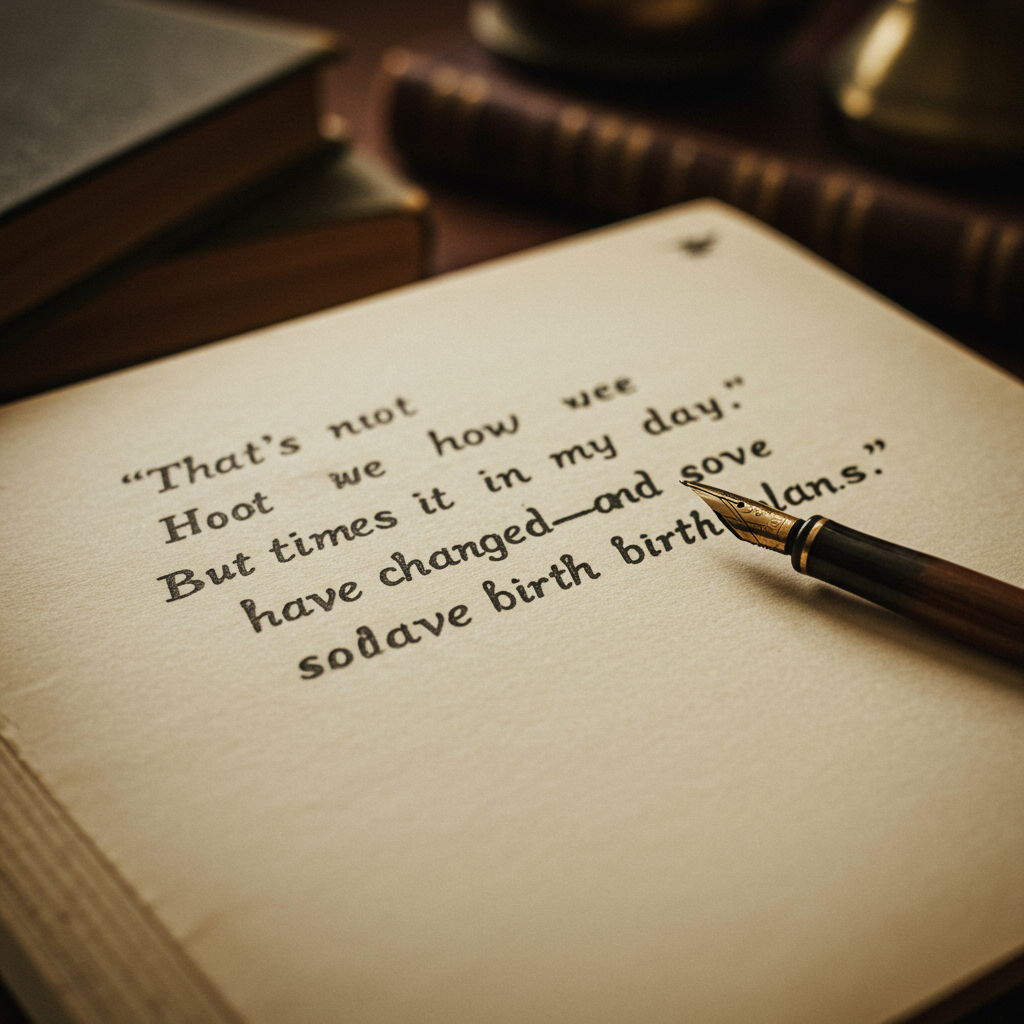 “That’s nıot
Hoot we how wee
But times it in my day.”
have changed—and sove
sodave birth birth lan.s.”